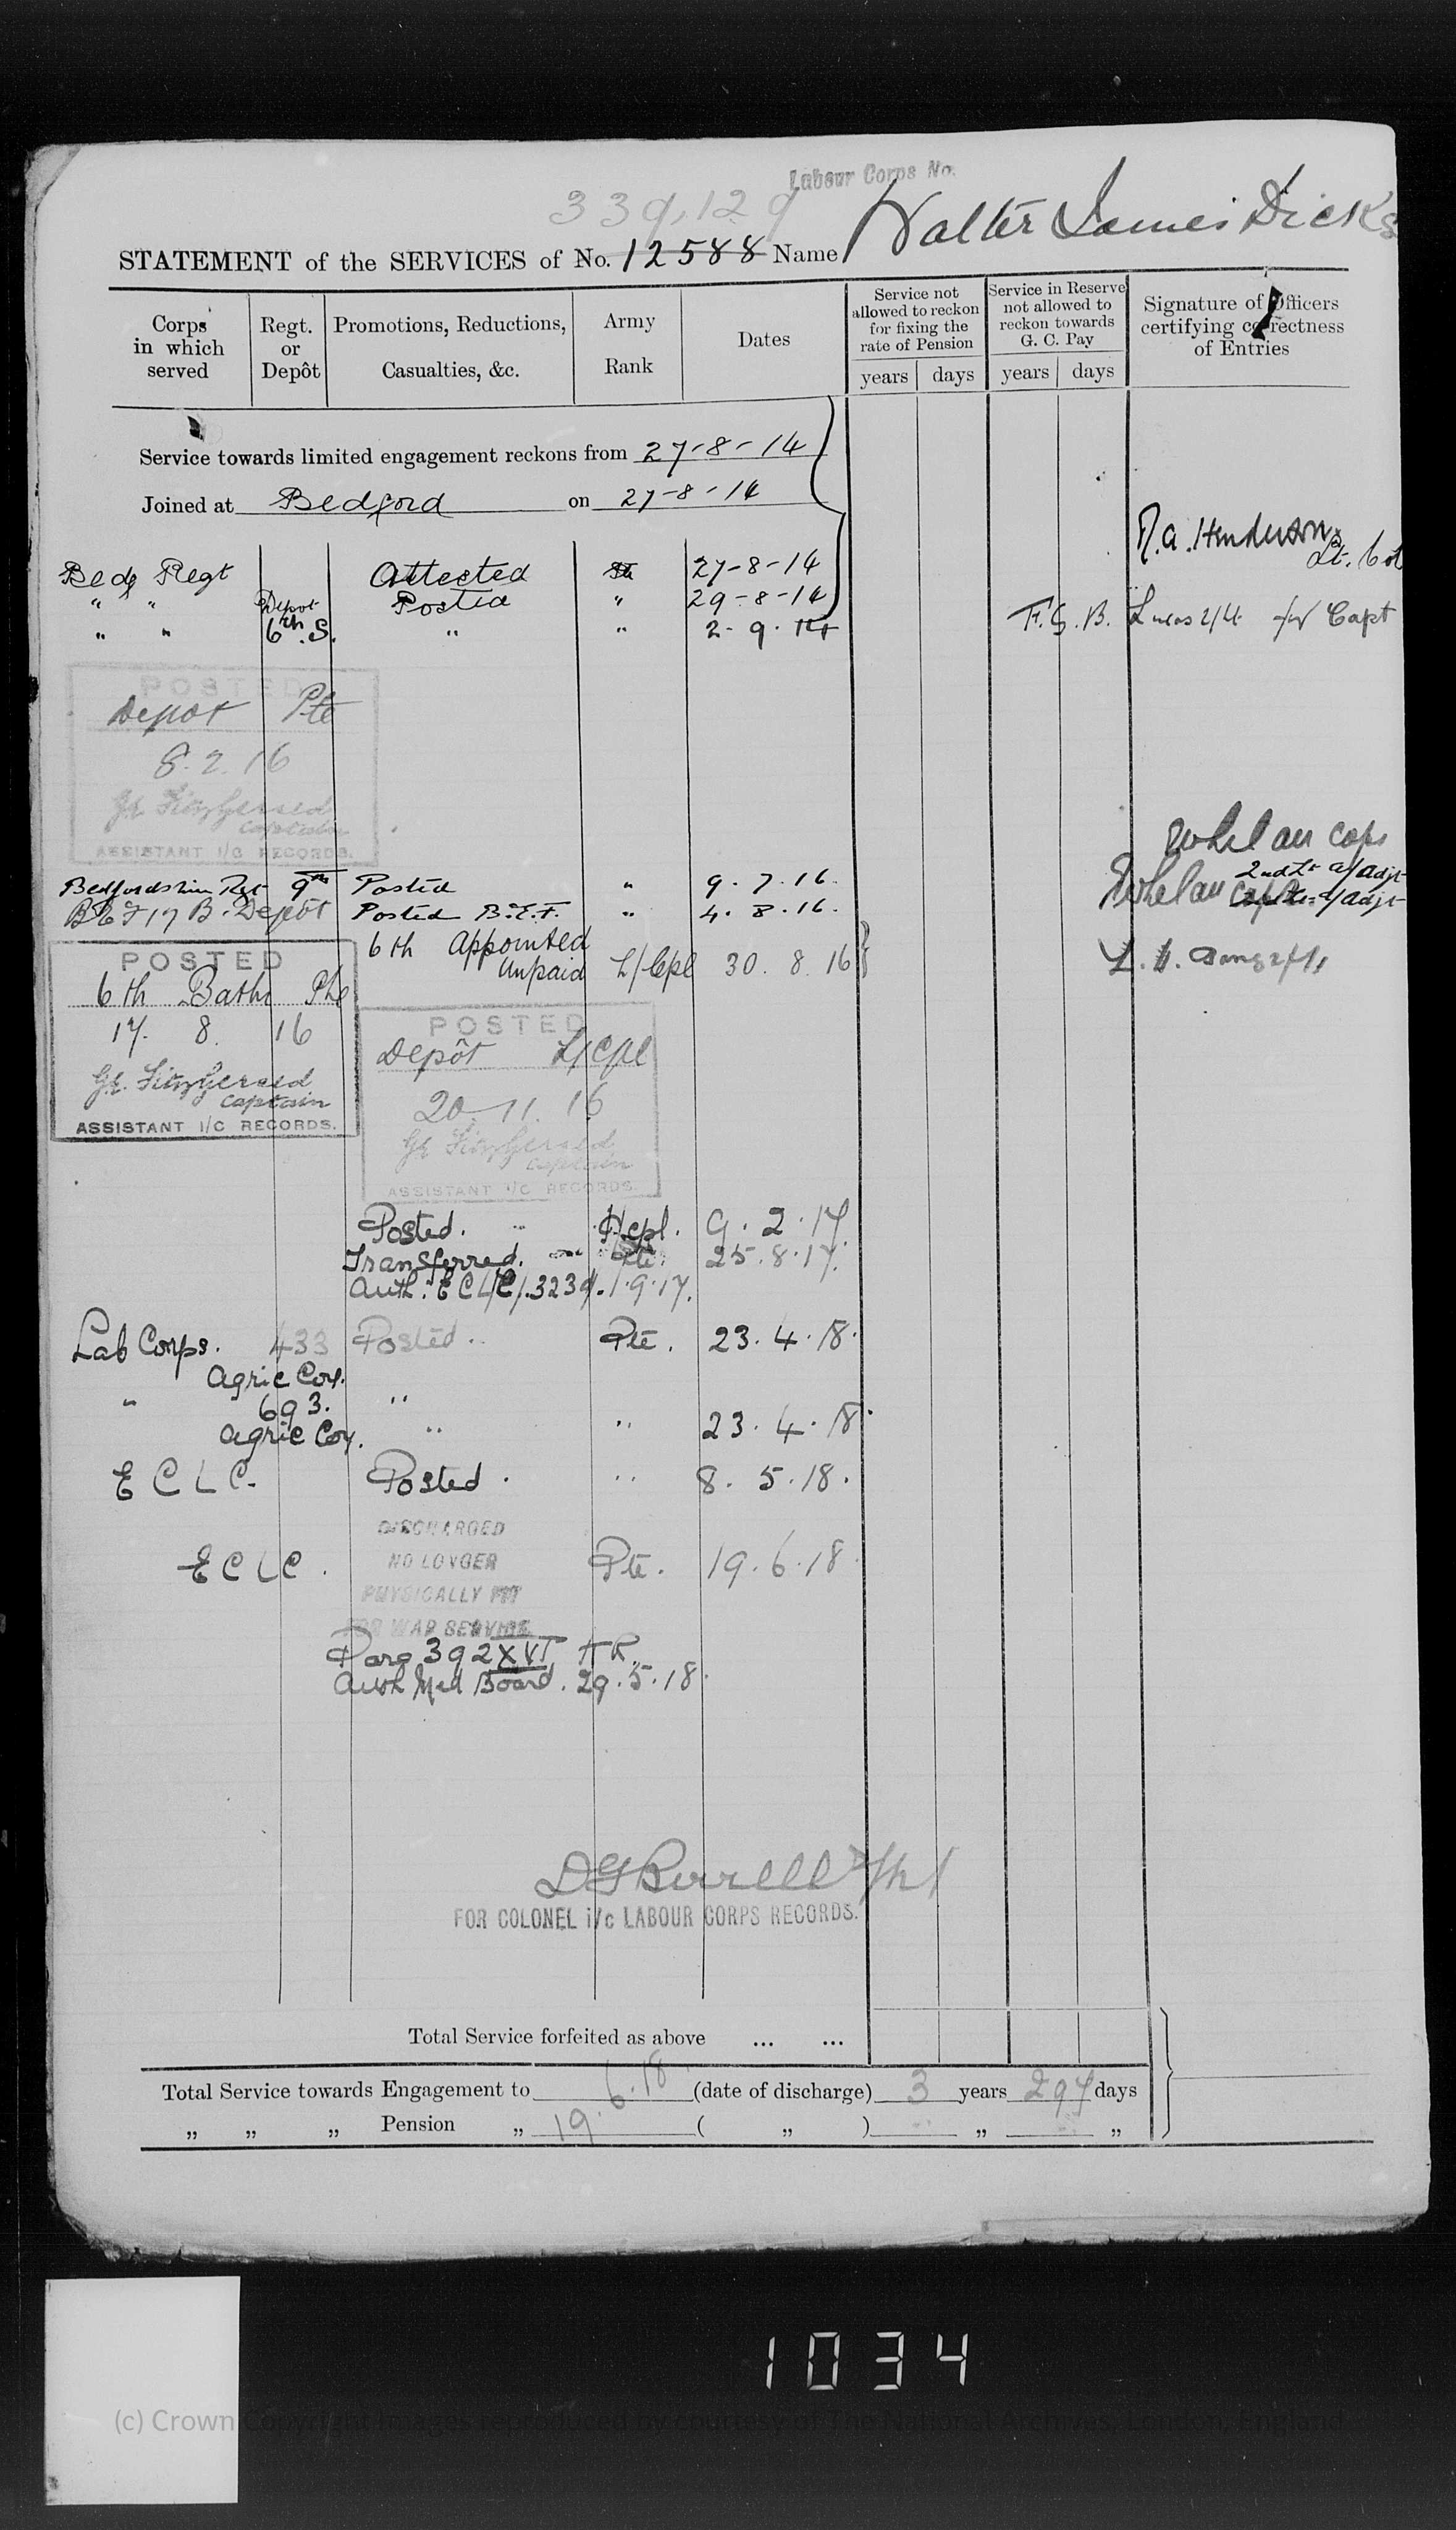 Labour Corps No.
339,129
STATEMENT of the SERVICES of No. 12588 Name Walter James Dicks
Corps in which served
Regt. or Depôt
Promotions, Reductions, Casualties, &c.
Army Rank
Dates
Service not allowed to reckon for fixing the rate of Pension
years days
Service in Reserve not allowed to reckon towards G. C. Pay
years days
Signature of Officers certifying correctness of Entries
Service towards limited engagement reckons from 27-8-14
Joined at Bedford on 27-8-14
Henderson Lt. Col
Beds Regt Attested 27-8-14
" " Depot Posted " 29-8-14
" " 6th. S. " " 2-9-14 Lucas for Capt
POSTED
Depot Pte
8.2.16
FitzGerald
Captain
ASSISTANT I/C RECORDS.
Whelan Capt
Bedfordshire Regt 9th Posted " 9.7.16. 2nd Lt a/adjt
BEF 17 B. Depôt Posted B.E.F. " 4.8.16. Whelan a/adjt
6th Appointed
Unpaid L/Cpl 30.8.16
POSTED
6th Battn Pte
17. 8. 16
FitzGerald
Captain
ASSISTANT I/C RECORDS.
POSTED
Depôt L/Cpl
20.11.16
FitzGerald
Captain
ASSISTANT I/C RECORDS.
Posted. L/Cpl. 9.2.17.
Transferred. Pte. 25.8.17.
Auth: ECLC/3239. 1.9.17.
Lab Corps. 433 Posted. Pte. 23.4.18.
Agric Coy.
" 693. "
Agric Coy. " " 23.4.18.
E C L C. Posted. " 8.5.18.
DISCHARGED
E C L C. NO LONGER Pte. 19.6.18
PHYSICALLY FIT
FOR WAR SERVICE
Para 392 XVI KR.
Auth Med Board. 29.5.18.
FOR COLONEL i/c LABOUR CORPS RECORDS.
Total Service forfeited as above ... ...
Total Service towards Engagement to 19.6.18 (date of discharge) 3 years 297 days
" " " Pension " ( " ) " "
1034
(c) Crown Copyright Images reproduced by courtesy of The National Archives, London, England.